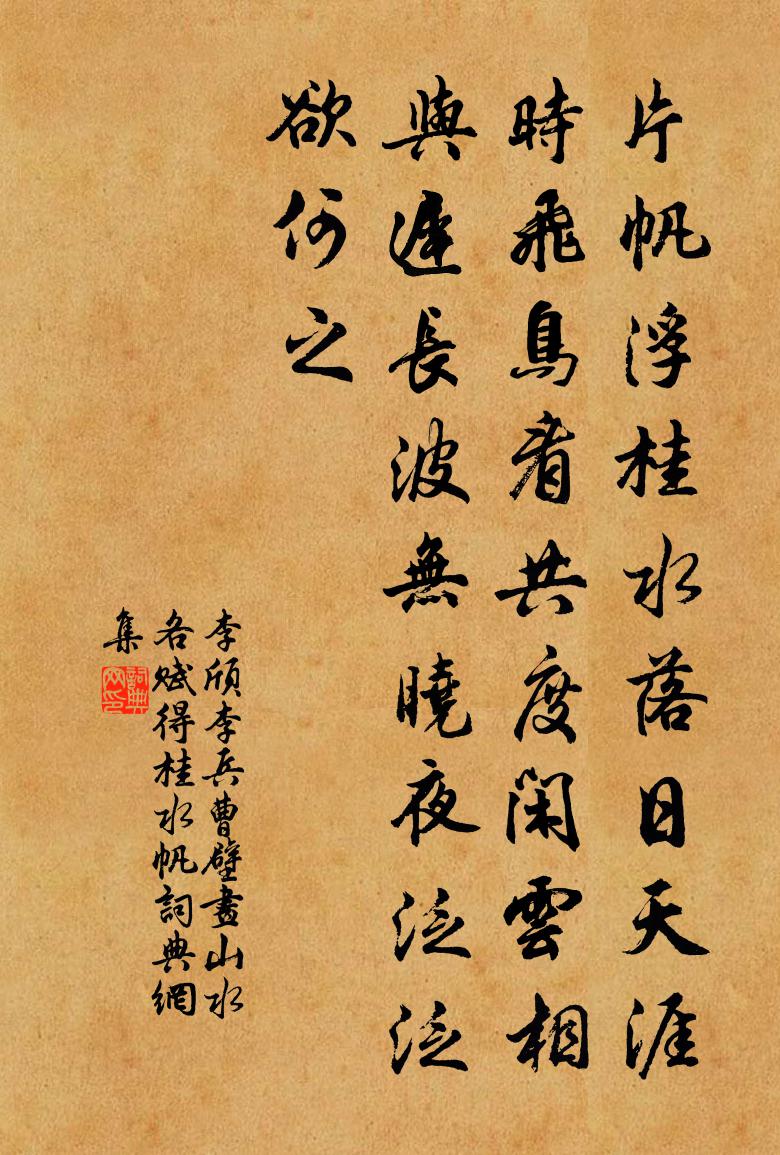 片帆浮桂水落日天涯
時飛鳥看共度閑雲相
與遲長波無曉夜泛泛
欲何之
李頎李兵曹壁畫山水
各賦得桂水帆詞典網
集
詞典
網印